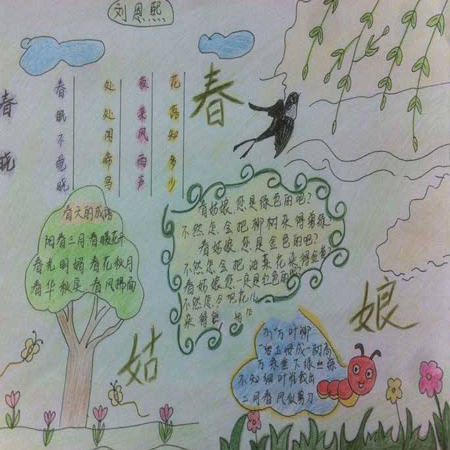 刘恩熙
春
姑
娘
春晓
春眠不觉晓
处处闻啼鸟
夜来风雨声
花落知多少
春天的成语
阳春三月 春暖花开
春光明媚 春花秋月
春华秋实 春风拂面
春姑娘,您是绿色的吧?
不然怎会把柳树染得翠绿
春姑娘您是金色的吧?
不然怎会把油菜花染得金黄
春姑娘您一定是红色的吧
不然怎会把花儿
染得
碧玉妆成一树高
万条垂下绿丝绦
不知细叶谁裁出
二月春风似剪刀